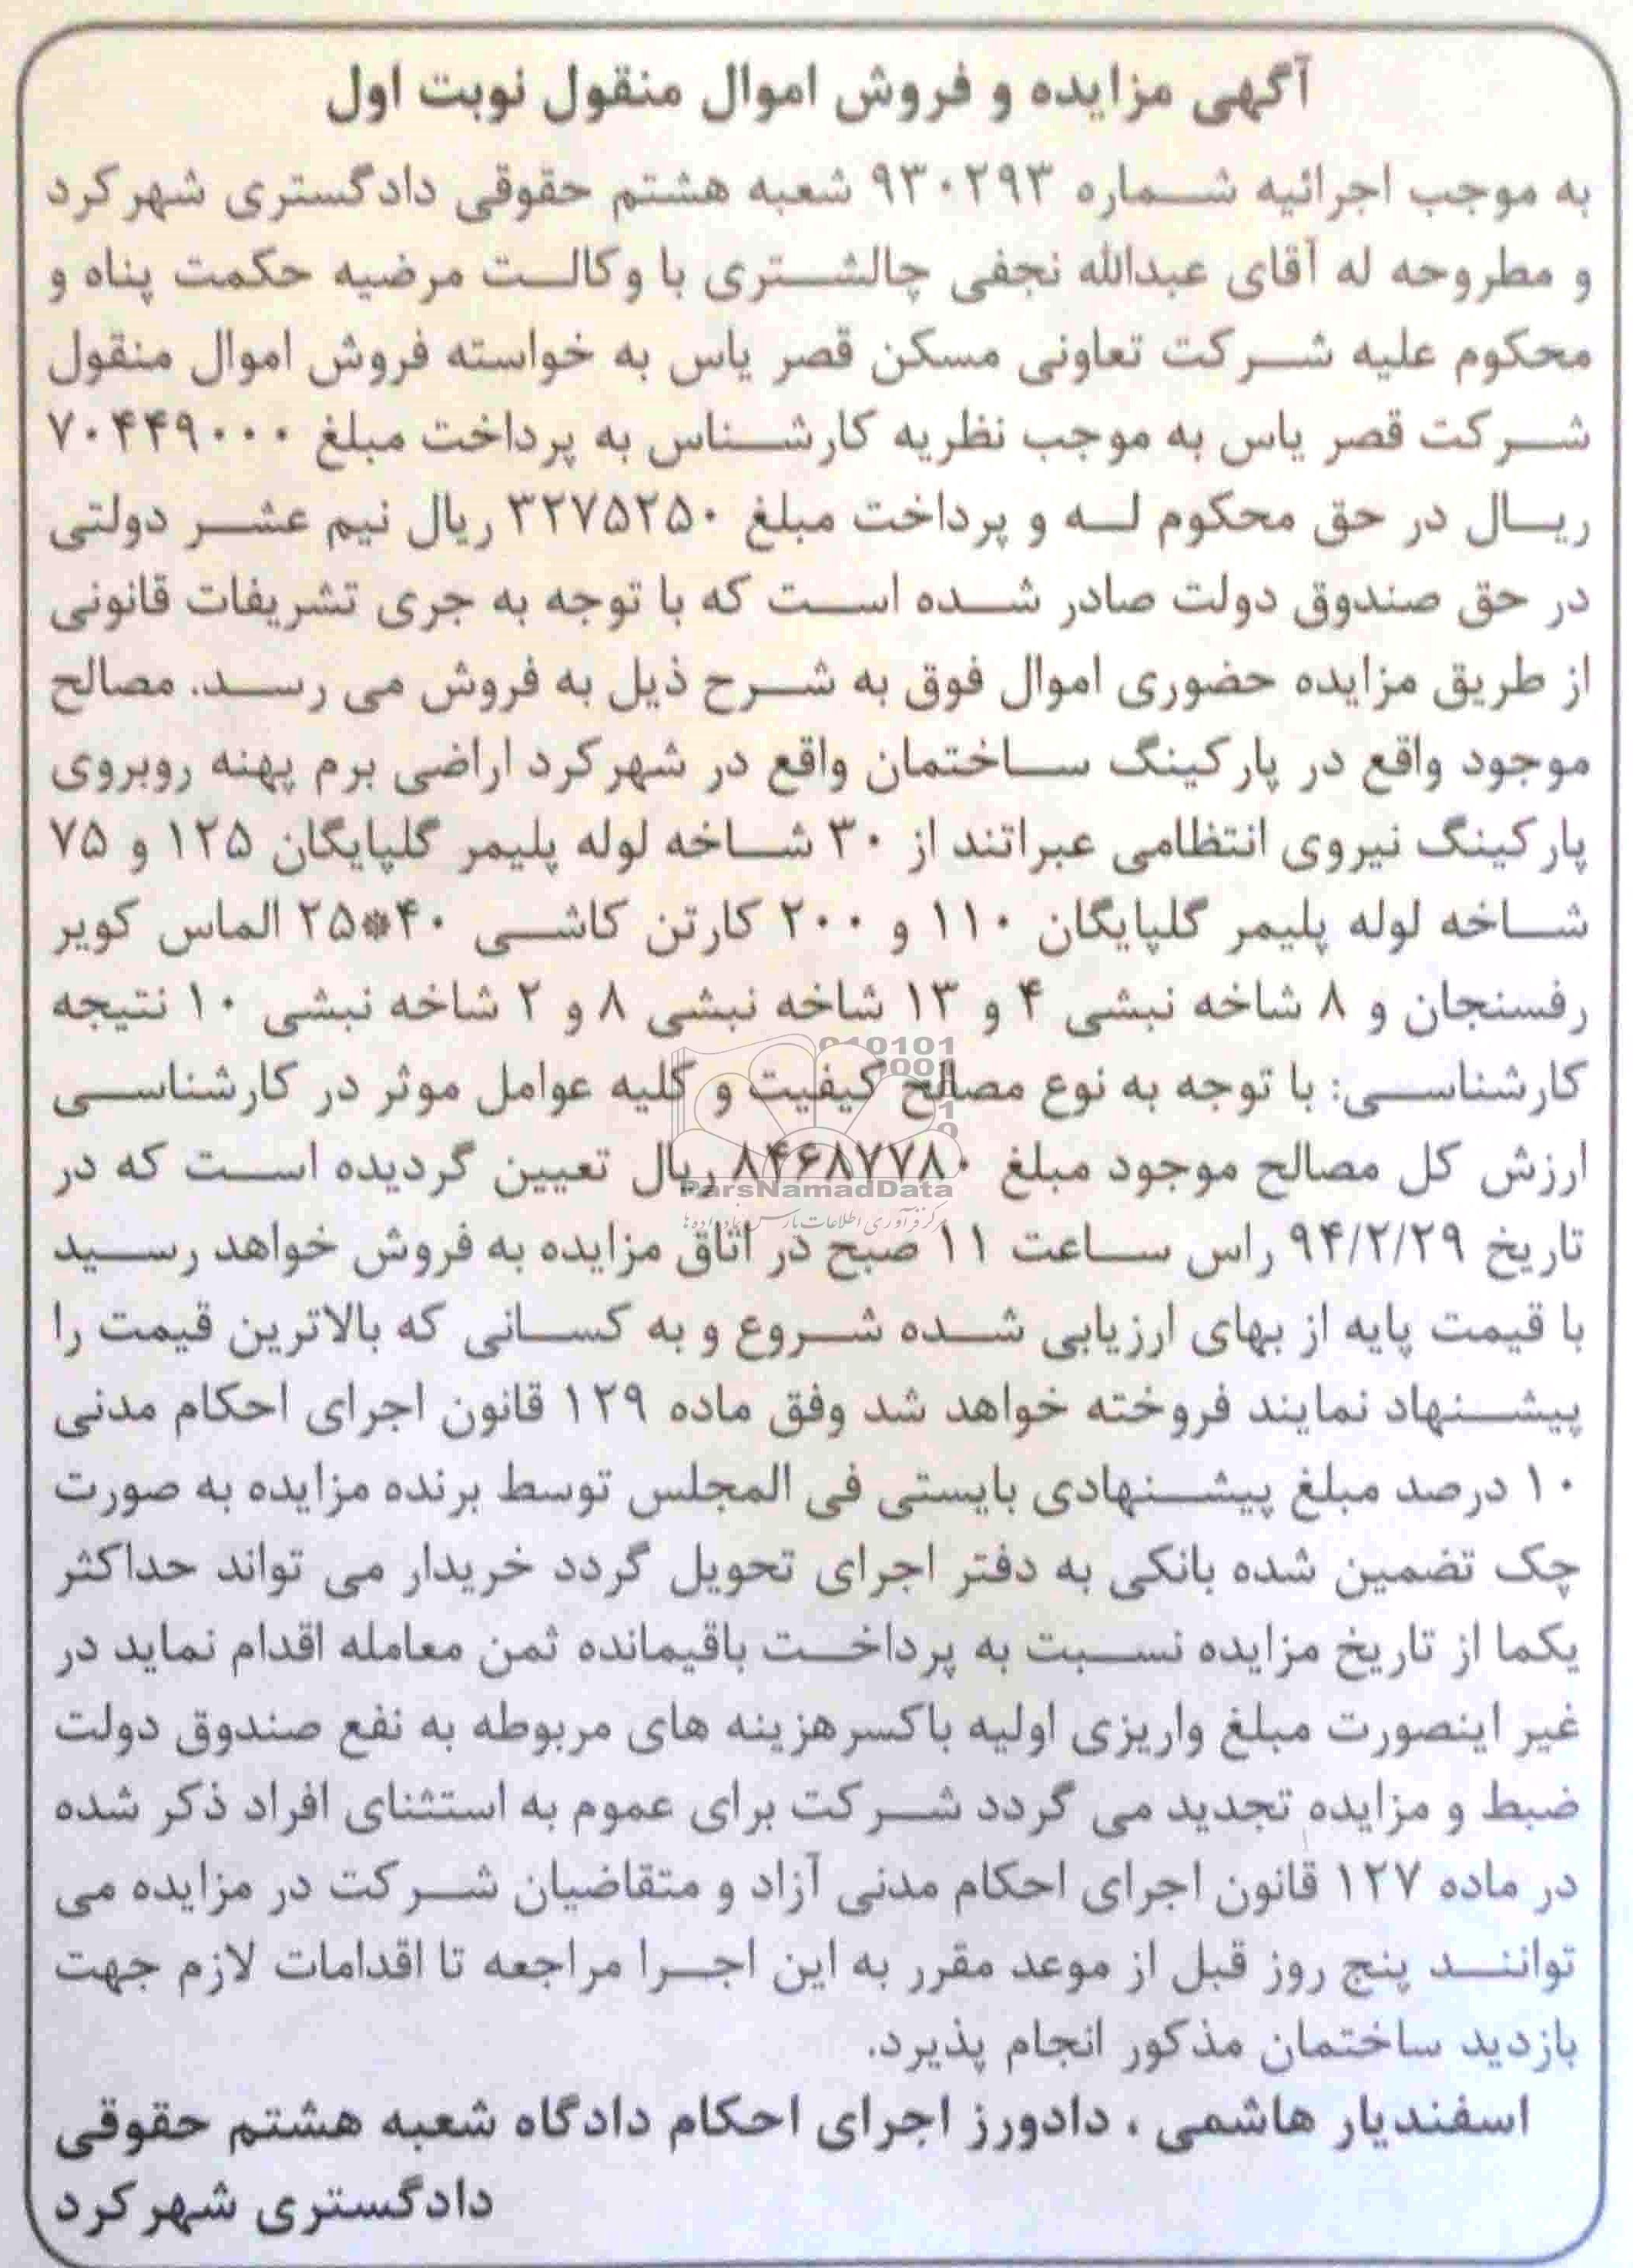 آگهی مزایده و فروش اموال منقول نوبت اول
به موجب اجرائیه شماره ۹۳۰۲۹۳ شعبه هشتم حقوقی دادگستری شهرکرد
و مطروحه له آقای عبدالله نجفی چالشتری با وکالت مرضیه حکمت پناه و
محکوم علیه شرکت تعاونی مسکن قصر یاس به خواسته فروش اموال منقول
شرکت قصر یاس به موجب نظریه کارشناس به پرداخت مبلغ ۷۰۴۴۹۰۰۰
ریال در حق محکوم له و پرداخت مبلغ ۳۲۷۵۲۵۰ ریال نیم عشر دولتی
در حق صندوق دولت صادر شده است که با توجه به جری تشریفات قانونی
از طریق مزایده حضوری اموال فوق به شرح ذیل به فروش می رسد. مصالح
موجود واقع در پارکینگ ساختمان واقع در شهرکرد اراضی برم پهنه روبروی
پارکینگ نیروی انتظامی عبراتند از ۳۰ شاخه لوله پلیمر گلپایگان ۱۲۵ و ۷۵
شاخه لوله پلیمر گلپایگان ۱۱۰ و ۲۰۰ کارتن کاشی ۴۰*۲۵ الماس کویر
رفسنجان و ۸ شاخه نبشی ۴ و ۱۳ شاخه نبشی ۸ و ۲ شاخه نبشی ۱۰ نتیجه
کارشناسی: با توجه به نوع مصالح کیفیت و کلیه عوامل موثر در کارشناسی
ارزش کل مصالح موجود مبلغ ۸۴۶۸۷۷۸۰ ریال تعیین گردیده است که در
ParsNamadData
مرکز فرآوری اطلاعات پارس نماد داده ها
تاریخ ۹۴/۲/۲۹ راس ساعت ۱۱ صبح در اتاق مزایده به فروش خواهد رسید
با قیمت پایه از بهای ارزیابی شده شروع و به کسانی که بالاترین قیمت را
پیشنهاد نمایند فروخته خواهد شد وفق ماده ۱۲۹ قانون اجرای احکام مدنی
۱۰ درصد مبلغ پیشنهادی بایستی فی المجلس توسط برنده مزایده به صورت
چک تضمین شده بانکی به دفتر اجرای تحویل گردد خریدار می تواند حداکثر
یکما از تاریخ مزایده نسبت به پرداخت باقیمانده ثمن معامله اقدام نماید در
غیر اینصورت مبلغ واریزی اولیه باکسرهزینه های مربوطه به نفع صندوق دولت
ضبط و مزایده تجدید می گردد شرکت برای عموم به استثنای افراد ذکر شده
در ماده ۱۲۷ قانون اجرای احکام مدنی آزاد و متقاضیان شرکت در مزایده می
توانند پنج روز قبل از موعد مقرر به این اجرا مراجعه تا اقدامات لازم جهت
بازدید ساختمان مذکور انجام پذیرد.
اسفندیار هاشمی ، دادورز اجرای احکام دادگاه شعبه هشتم حقوقی
دادگستری شهرکرد